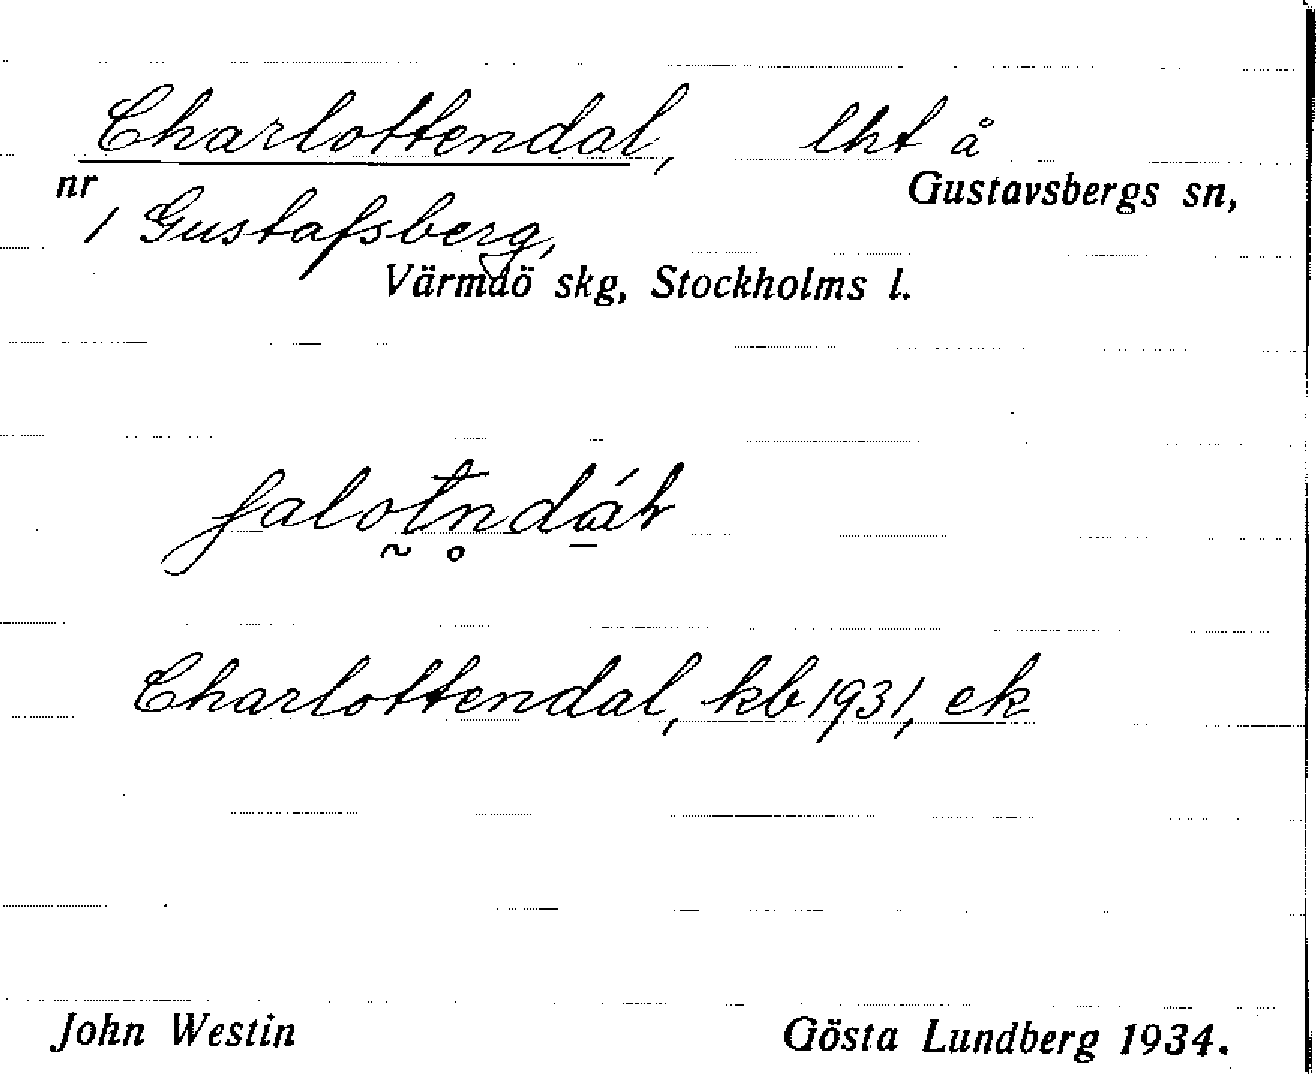 Charlottendal, lht å
nr Gustavsbergs sn,
1 Gustafsberg,
Värmdö skg, Stockholms l.
Charlottendal, kb 1931, ek
John Westin Gösta Lundberg 1934.